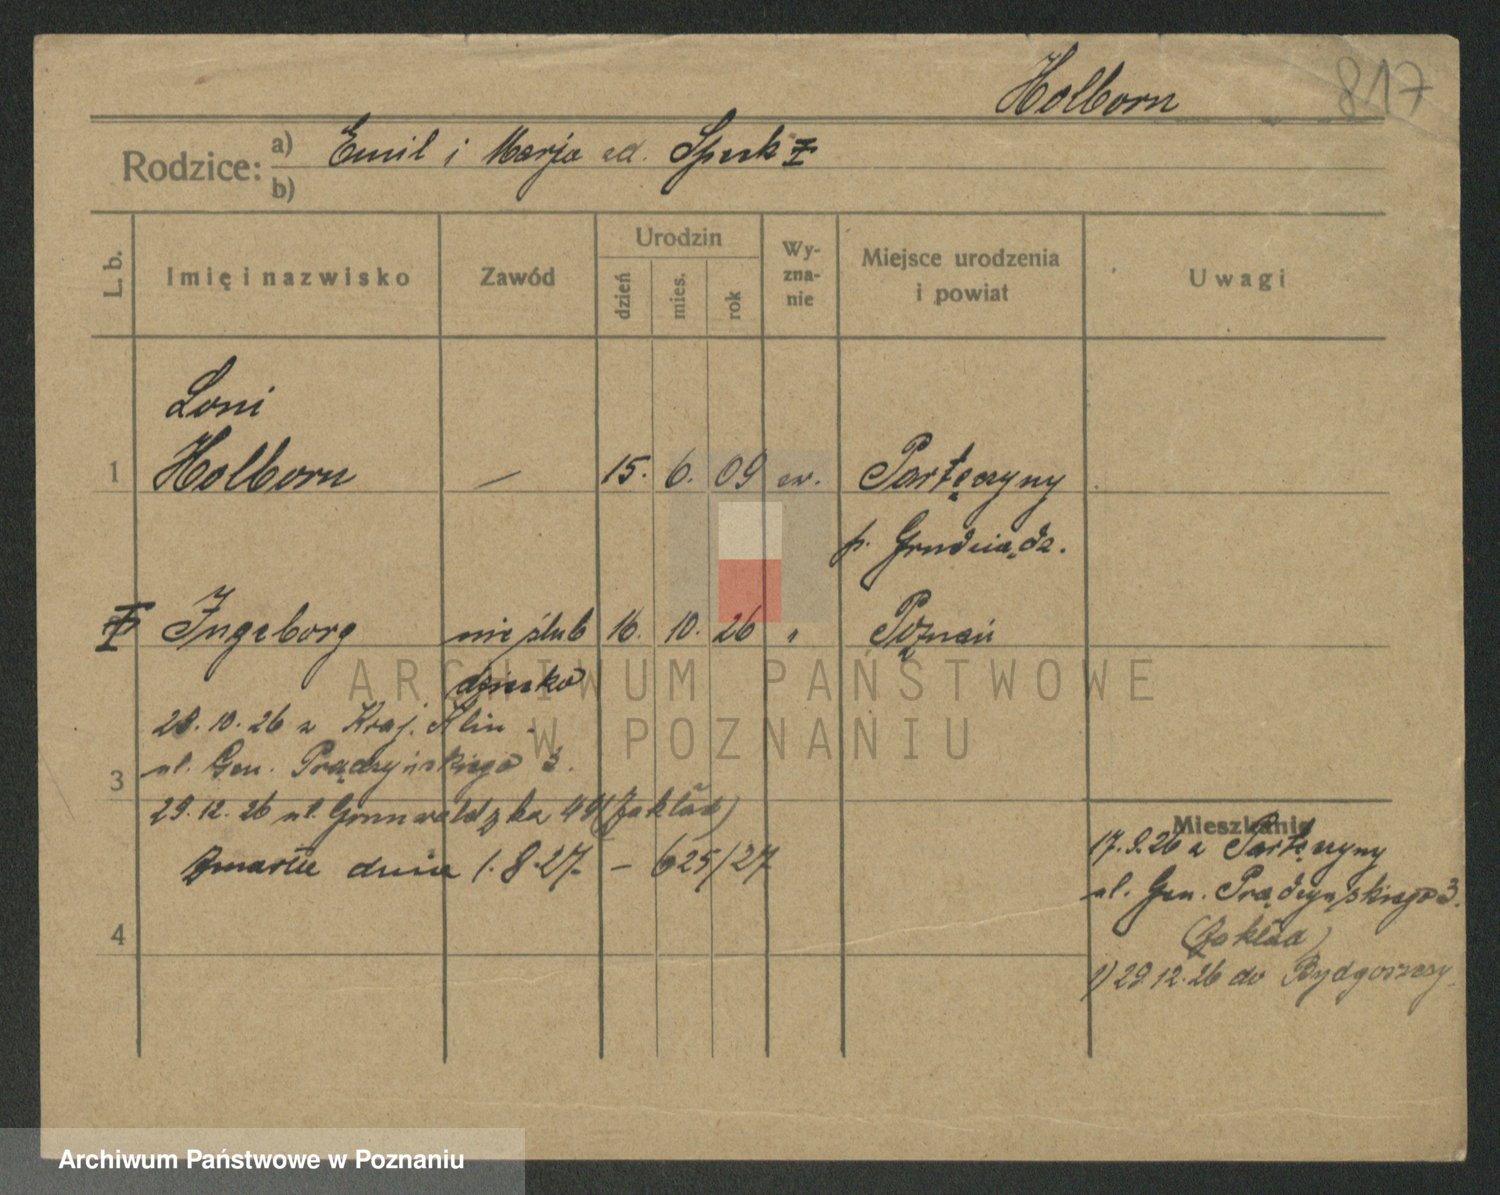 Holborn 817
Rodzice: a) Emil i Marja
b)
L. b.
Imię i nazwisko
Zawód
Urodzin
dzień
mies.
rok
Wy-
zna-
nie
Miejsce urodzenia
i powiat
Uwagi
Loni
1 Holborn — 15. 6. 09 ew. Partęczyny
p. Grudziądz.
Ingeborg nieślub 16. 10. 26 " Poznań
dziecko
ARCHIWUM PAŃSTWOWE
W POZNANIU
28.10.26 z Kraj. Klin.
ul. Gen. Prądzyńskiego 3.
3
29.12.26 ul. Grunwaldzka 49 (Zakład)
Zmarła dnia 1.8.27. – 625/27
4
Mieszkanie
17.9.26 z Partęczyny
ul. Gen. Prądzyńskiego 3.
(Zakład)
1) 29.12.26 do Bydgoszczy
Archiwum Państwowe w Poznaniu